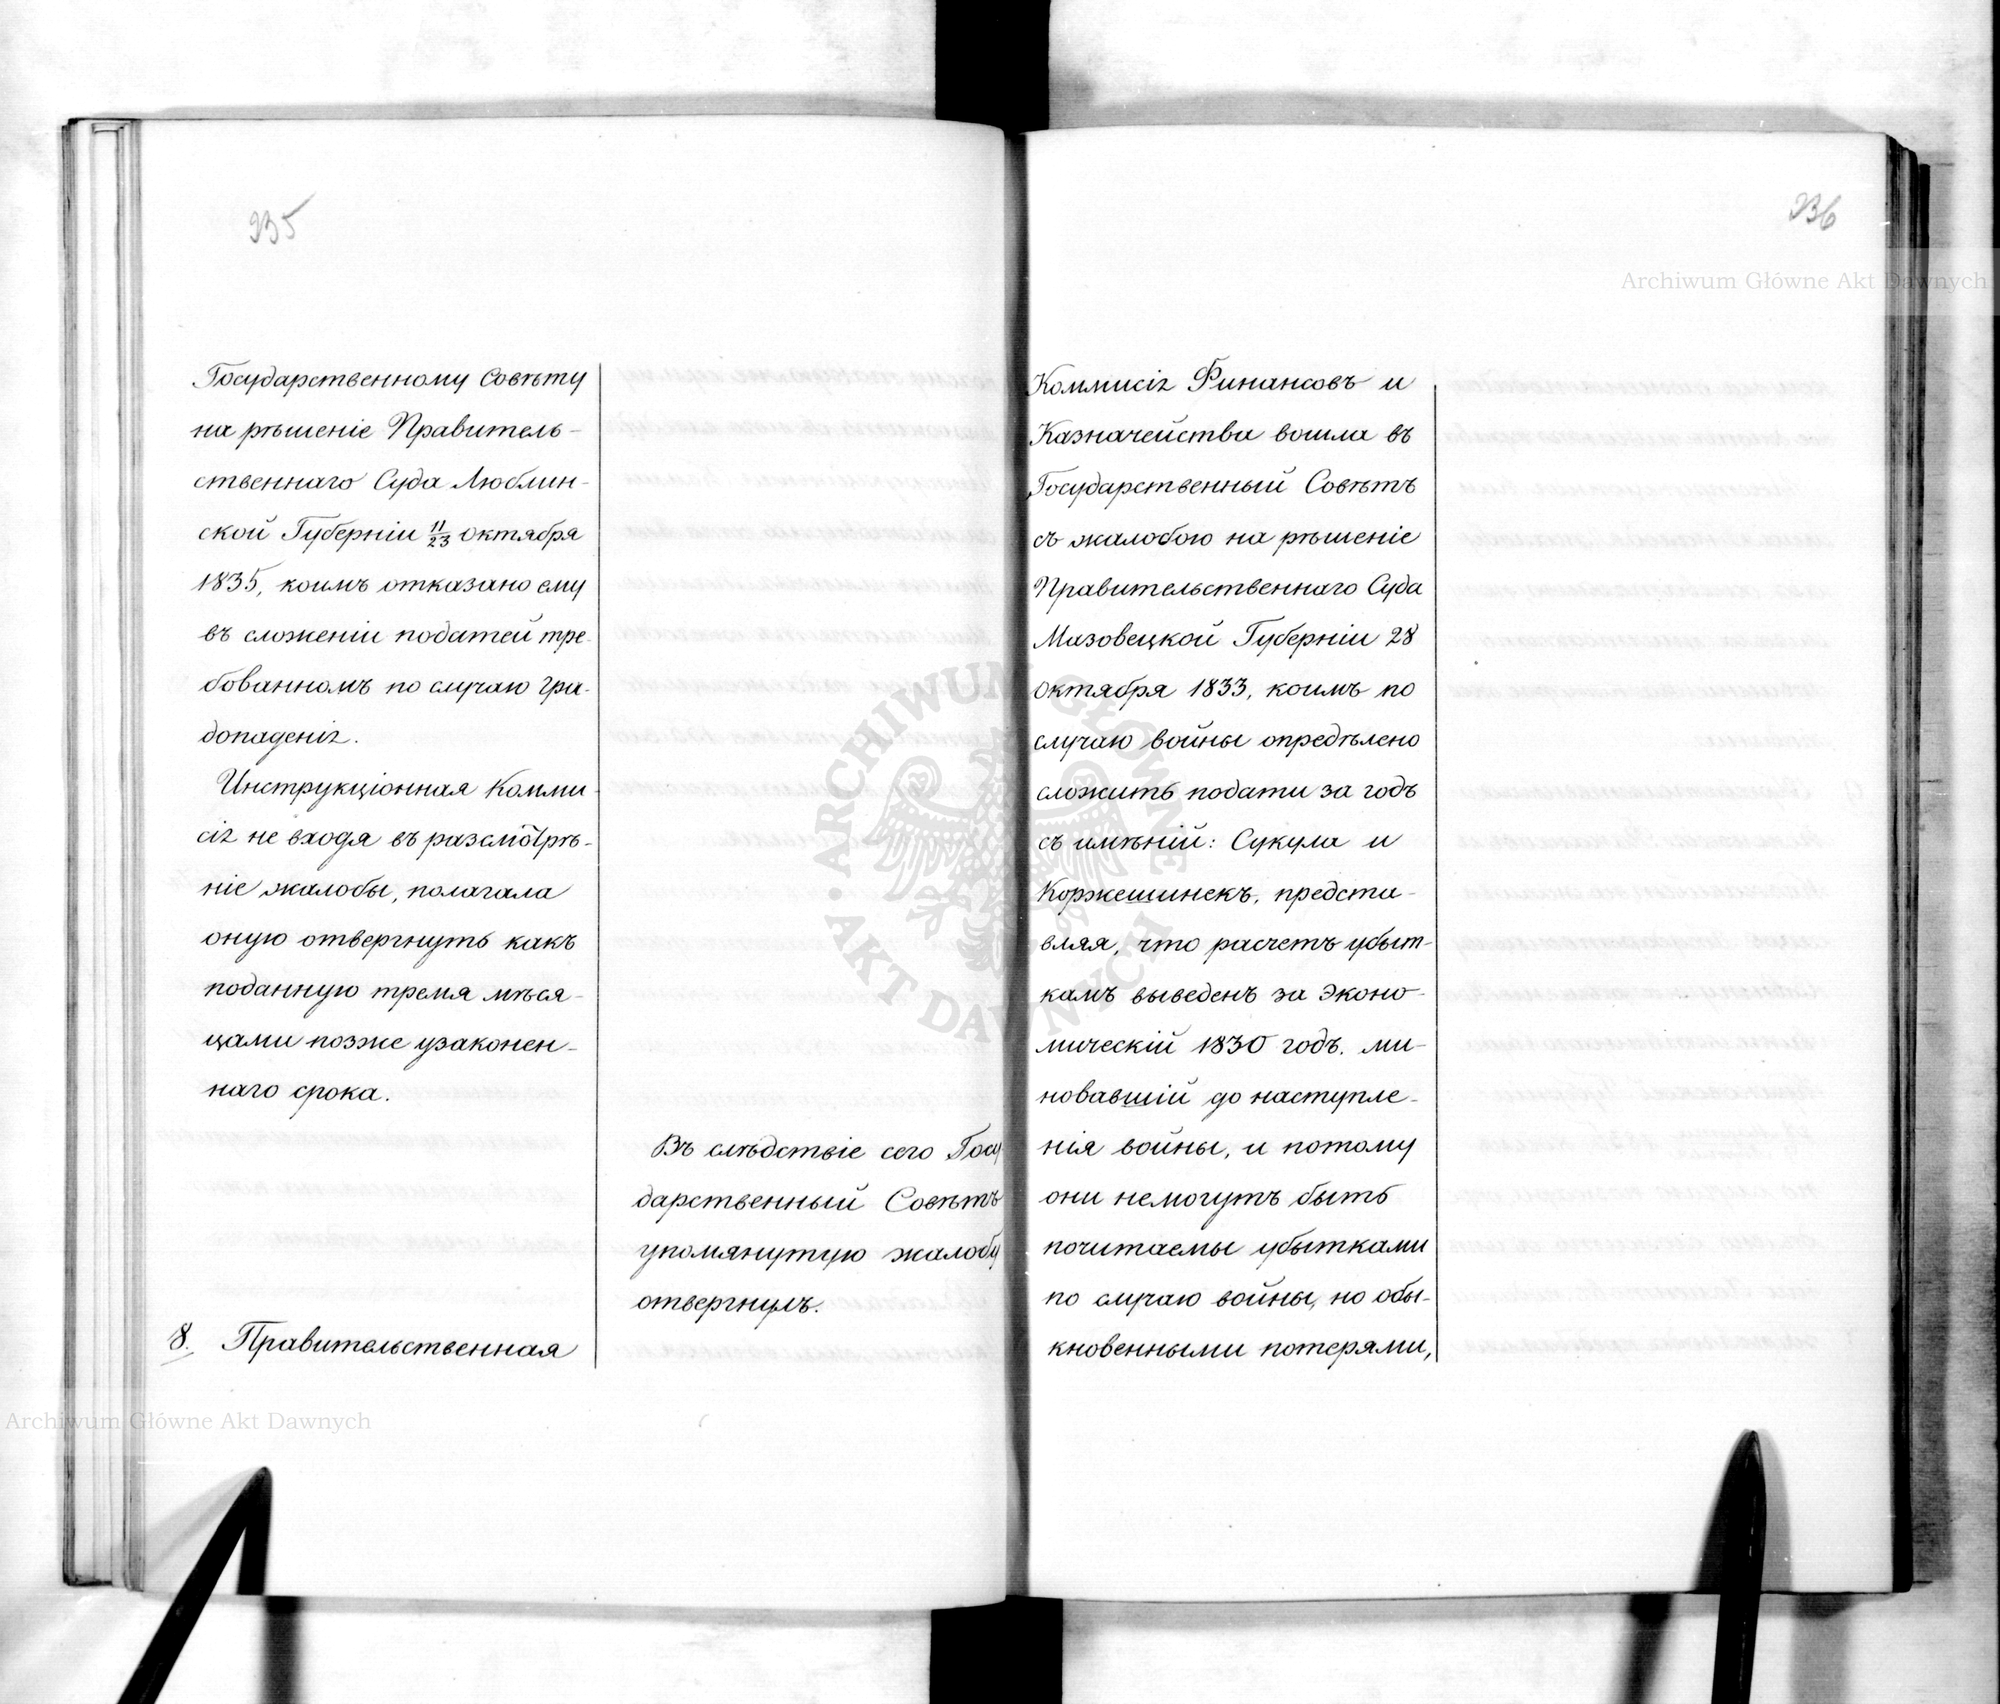 235
Государственному Совѣту
на рѣшеніе Правитель-
ственнаго Суда Люблин-
ской Губерніи 11/23 октября
1835, коимъ отказано ему
въ сложеніи податей тре-
бованномъ по случаю гра-
допаденія.
Инструкціонная Комми-
сія не входя въ разсмотрѣ-
ніе жалобы, полагала
оную отвергнуть какъ
поданную тремя мѣся-
цами позже узаконен-
наго срока.
Въ слѣдствіе сего Госу
дарственный Совѣтъ
упомянутую жалобу
отвергнулъ.
8. Правительственная
236
Коммисія Финансовъ и
Казначейства вошла въ
Государственный Совѣтъ
съ жалобою на рѣшеніе
Правительственнаго Суда
Мазовецкой Губерніи 28
октября 1833, коимъ по
случаю войны опредѣлено
сложить подати за годъ
съ имѣній: Сукула и
Коржешинекъ, предста-
вляя, что расчетъ убыт-
камъ выведенъ за эконо-
мическій 1830 годъ, ми-
новавшій до наступле-
нія войны, и потому
они немогутъ быть
почитаемы убытками
по случаю войны, но обы-
кновенными потерями,
Archiwum Główne Akt Dawnych
Archiwum Główne Akt Dawnych
ARCHIWUM GŁÓWNE · AKT DAWNYCH ·